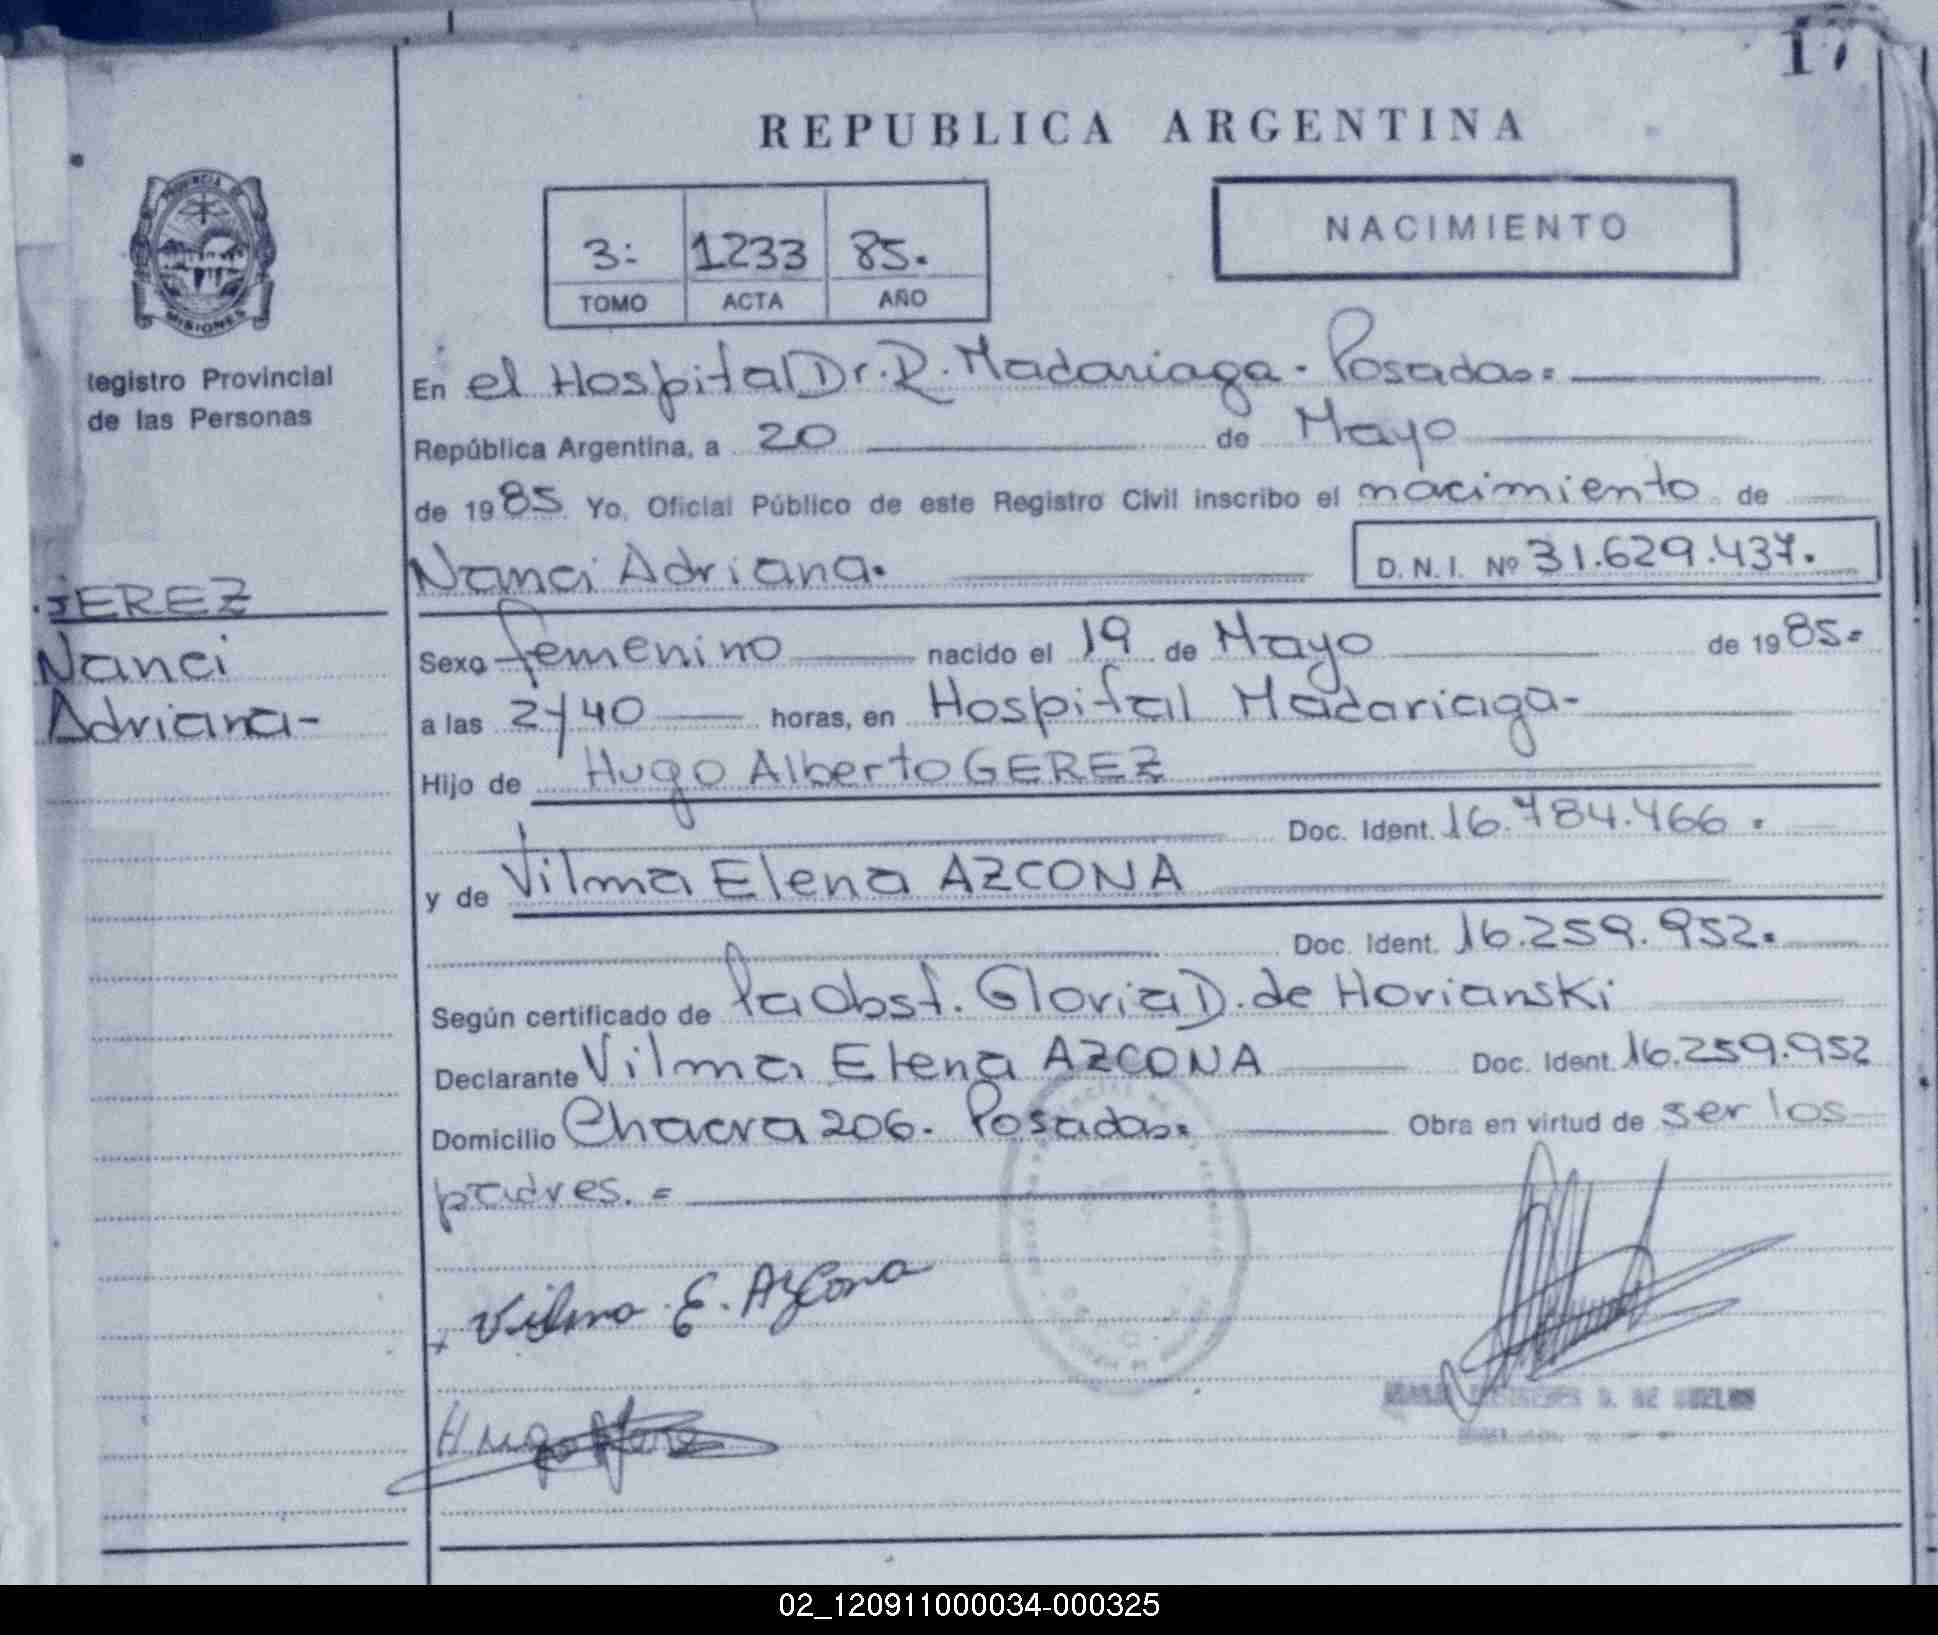 17
REPUBLICA ARGENTINA
PROVINCIA DE
MISIONES
3: 1233 85.
TOMO ACTA AÑO
NACIMIENTO
Registro Provincial
de las Personas
GEREZ
Nanci
Adriana-
En el Hospital Dr. R. Madariaga. Posadas=
República Argentina, a 20 de Mayo
de 1985 Yo, Oficial Público de este Registro Civil inscribo el nacimiento de
Nanci Adriana. D. N. I. Nº 31.629.437.
Sexo femenino nacido el 19 de Mayo de 1985=
a las 2y40 horas, en Hospital Madariaga-
Hijo de Hugo Alberto GEREZ
Doc. Ident. 16.784.466.
y de Vilma Elena AZCONA
Doc. Ident. 16.259.952.
Según certificado de la Obst. Gloria D. de Horianski
Declarante Vilma Elena AZCONA Doc. Ident. 16.259.952
Domicilio Chacra 206. Posadas= Obra en virtud de ser los
padres. =
x Vilma E. Azcona
Hugo Gerez
02_120911000034-000325